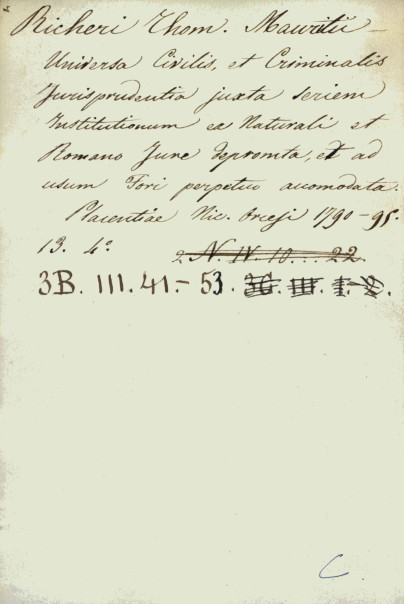 Richeri Thom. Mauritii -
Universa Civilis, et Criminalis
Jurisprudentia juxta seriem
Institutionum ex Naturali et
Romano Jure depromta, et ad
usum Fori perpetuo acomodata.
Placentiae Nic. Orcesi 1790-95.
13. 4° 2 N. IV. 10...22
3B. III. 41.- 53. 3C. III. 1-2.
C